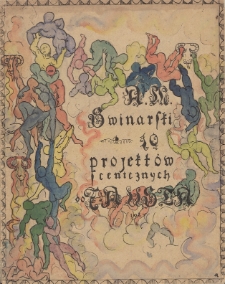 A.N.
Swinarski
10
projektów
scenicznych
do FAUSTA